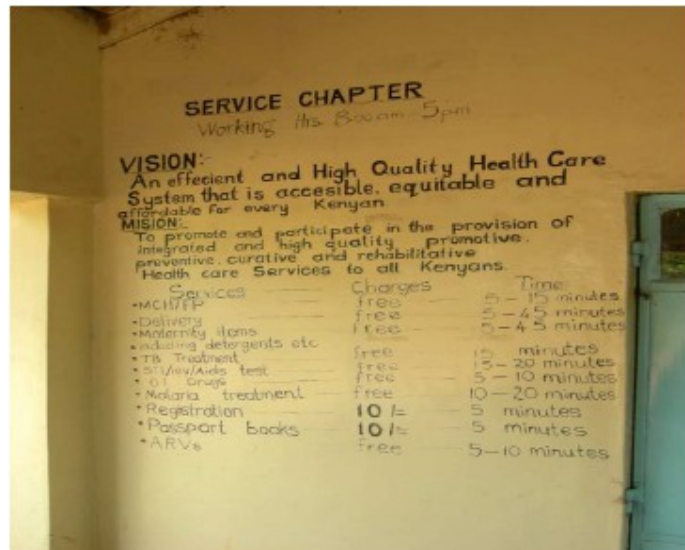 SERVICE CHAPTER
Working Hrs 8:00am - 5pm
VISION:-
An effecient and High Quality Health Care
System that is accesible, equitable and
affordable for every Kenyan.
MISION:-
To promote and participate in the provision of
integrated and high quality promotive,
preventive, curative and rehabilitative
Health care Services to all Kenyans.
Services Charges Time
•MCH/FP free 5-15 minutes
•Delivery free 5-45 minutes
•Maternity items free 5-45 minutes
•including detergents etc
•TB Treatment free 15 minutes
•STI/HIV/Aids test free 15-20 minutes
•OI Drugs free 5-10 minutes
•Malaria treatment free 10-20 minutes
•Registration 10/= 5 minutes
•Passport books 10/= 5 minutes
•ARVs free 5-10 minutes